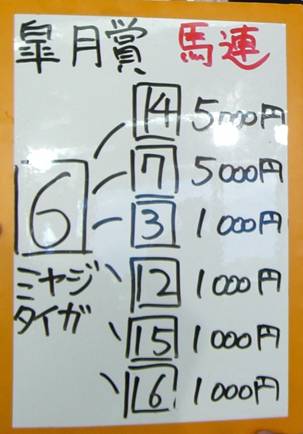 皐月賞 馬連
14 5000円
7 5000円
6
3 1000円
ミヤジ
12 1000円
タイガ
15 1000円
16 1000円